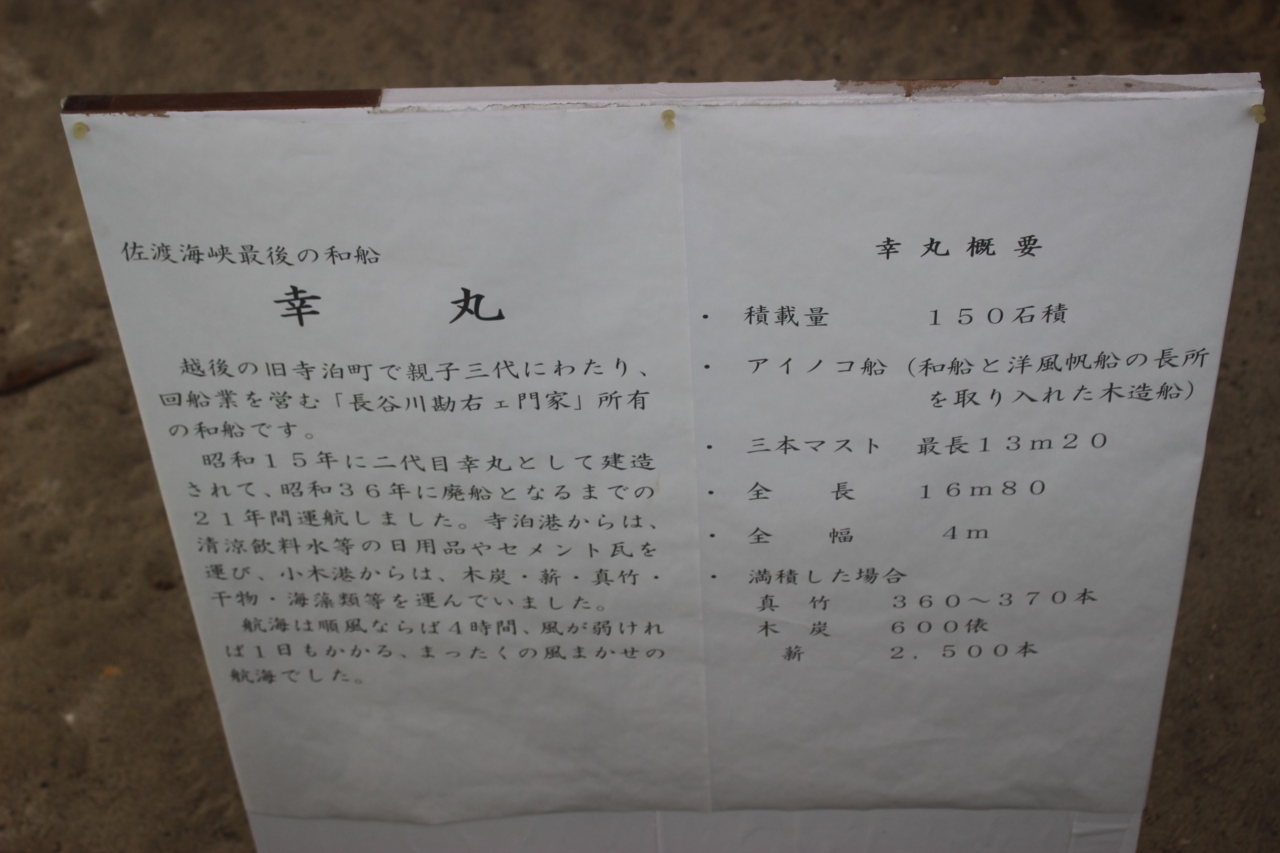 佐渡海峡最後の和船
幸　　　丸
越後の旧寺泊町で親子三代にわたり、
回船業を営む「長谷川勘右ェ門家」所有
の和船です。
昭和１５年に二代目幸丸として建造
されて、昭和３６年に廃船となるまでの
２１年間運航しました。寺泊港からは、
清涼飲料水等の日用品やセメント瓦を
運び、小木港からは、木炭・薪・真竹・
干物・海藻類等を運んでいました。
航海は順風ならば４時間、風が弱けれ
ば１日もかかる、まったくの風まかせの
航海でした。
幸 丸 概 要
・ 積載量　　　１５０石積
・ アイノコ船（和船と洋風帆船の長所
を取り入れた木造船）
・ 三本マスト　最長１３ｍ２０
・ 全　　長　　１６ｍ８０
・ 全　　幅　　　４ｍ
・ 満積した場合
真　竹　　３６０～３７０本
木　炭　　６００俵
薪　　　２，５００本